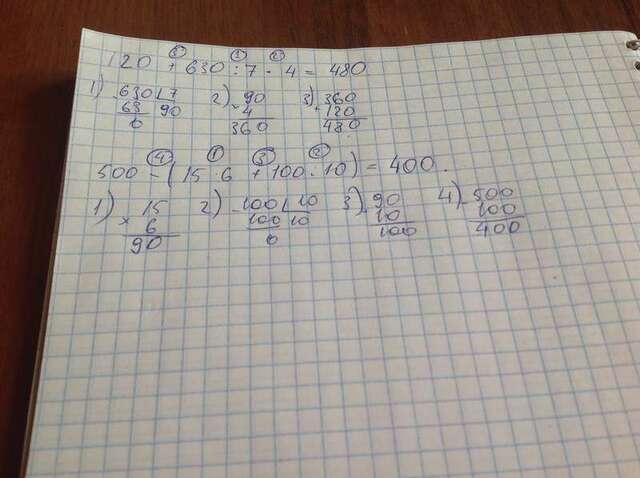 ③ ① ②
120 + 630 : 7 · 4 = 480
1) 630 | 7 2) 90 3) 360
63 90 × 4 + 120
0 360 480
④ ① ③ ②
500 - (15 · 6 + 100 : 10) = 400.
1) 15 2) 100 | 10 3) 90 4) 500
× 6 100 10 10 100
90 0 100 400